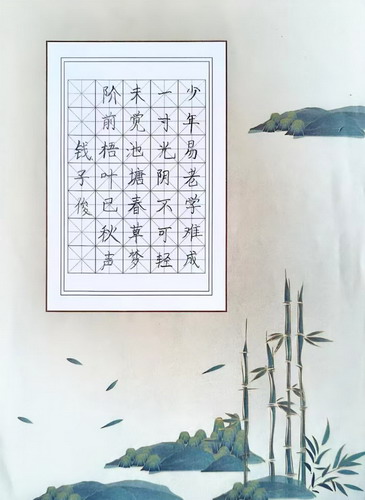 少年易老学难成
一寸光阴不可轻
未觉池塘春草梦
阶前梧叶已秋声
钱子俊